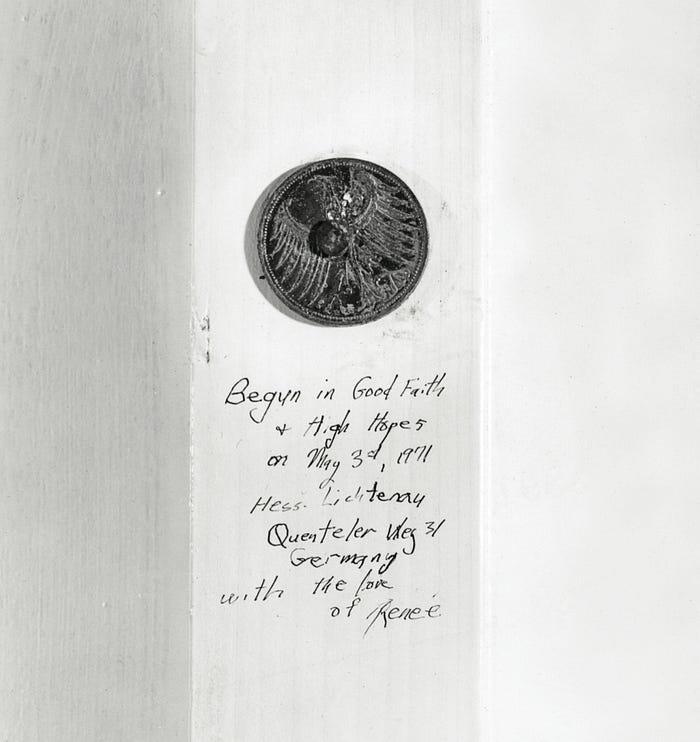 Begun in Good Faith
+ High Hopes
on May 3d, 1971
Hess. Lichtenau
Quenteler Weg 31
Germany
with the love
of Reneé